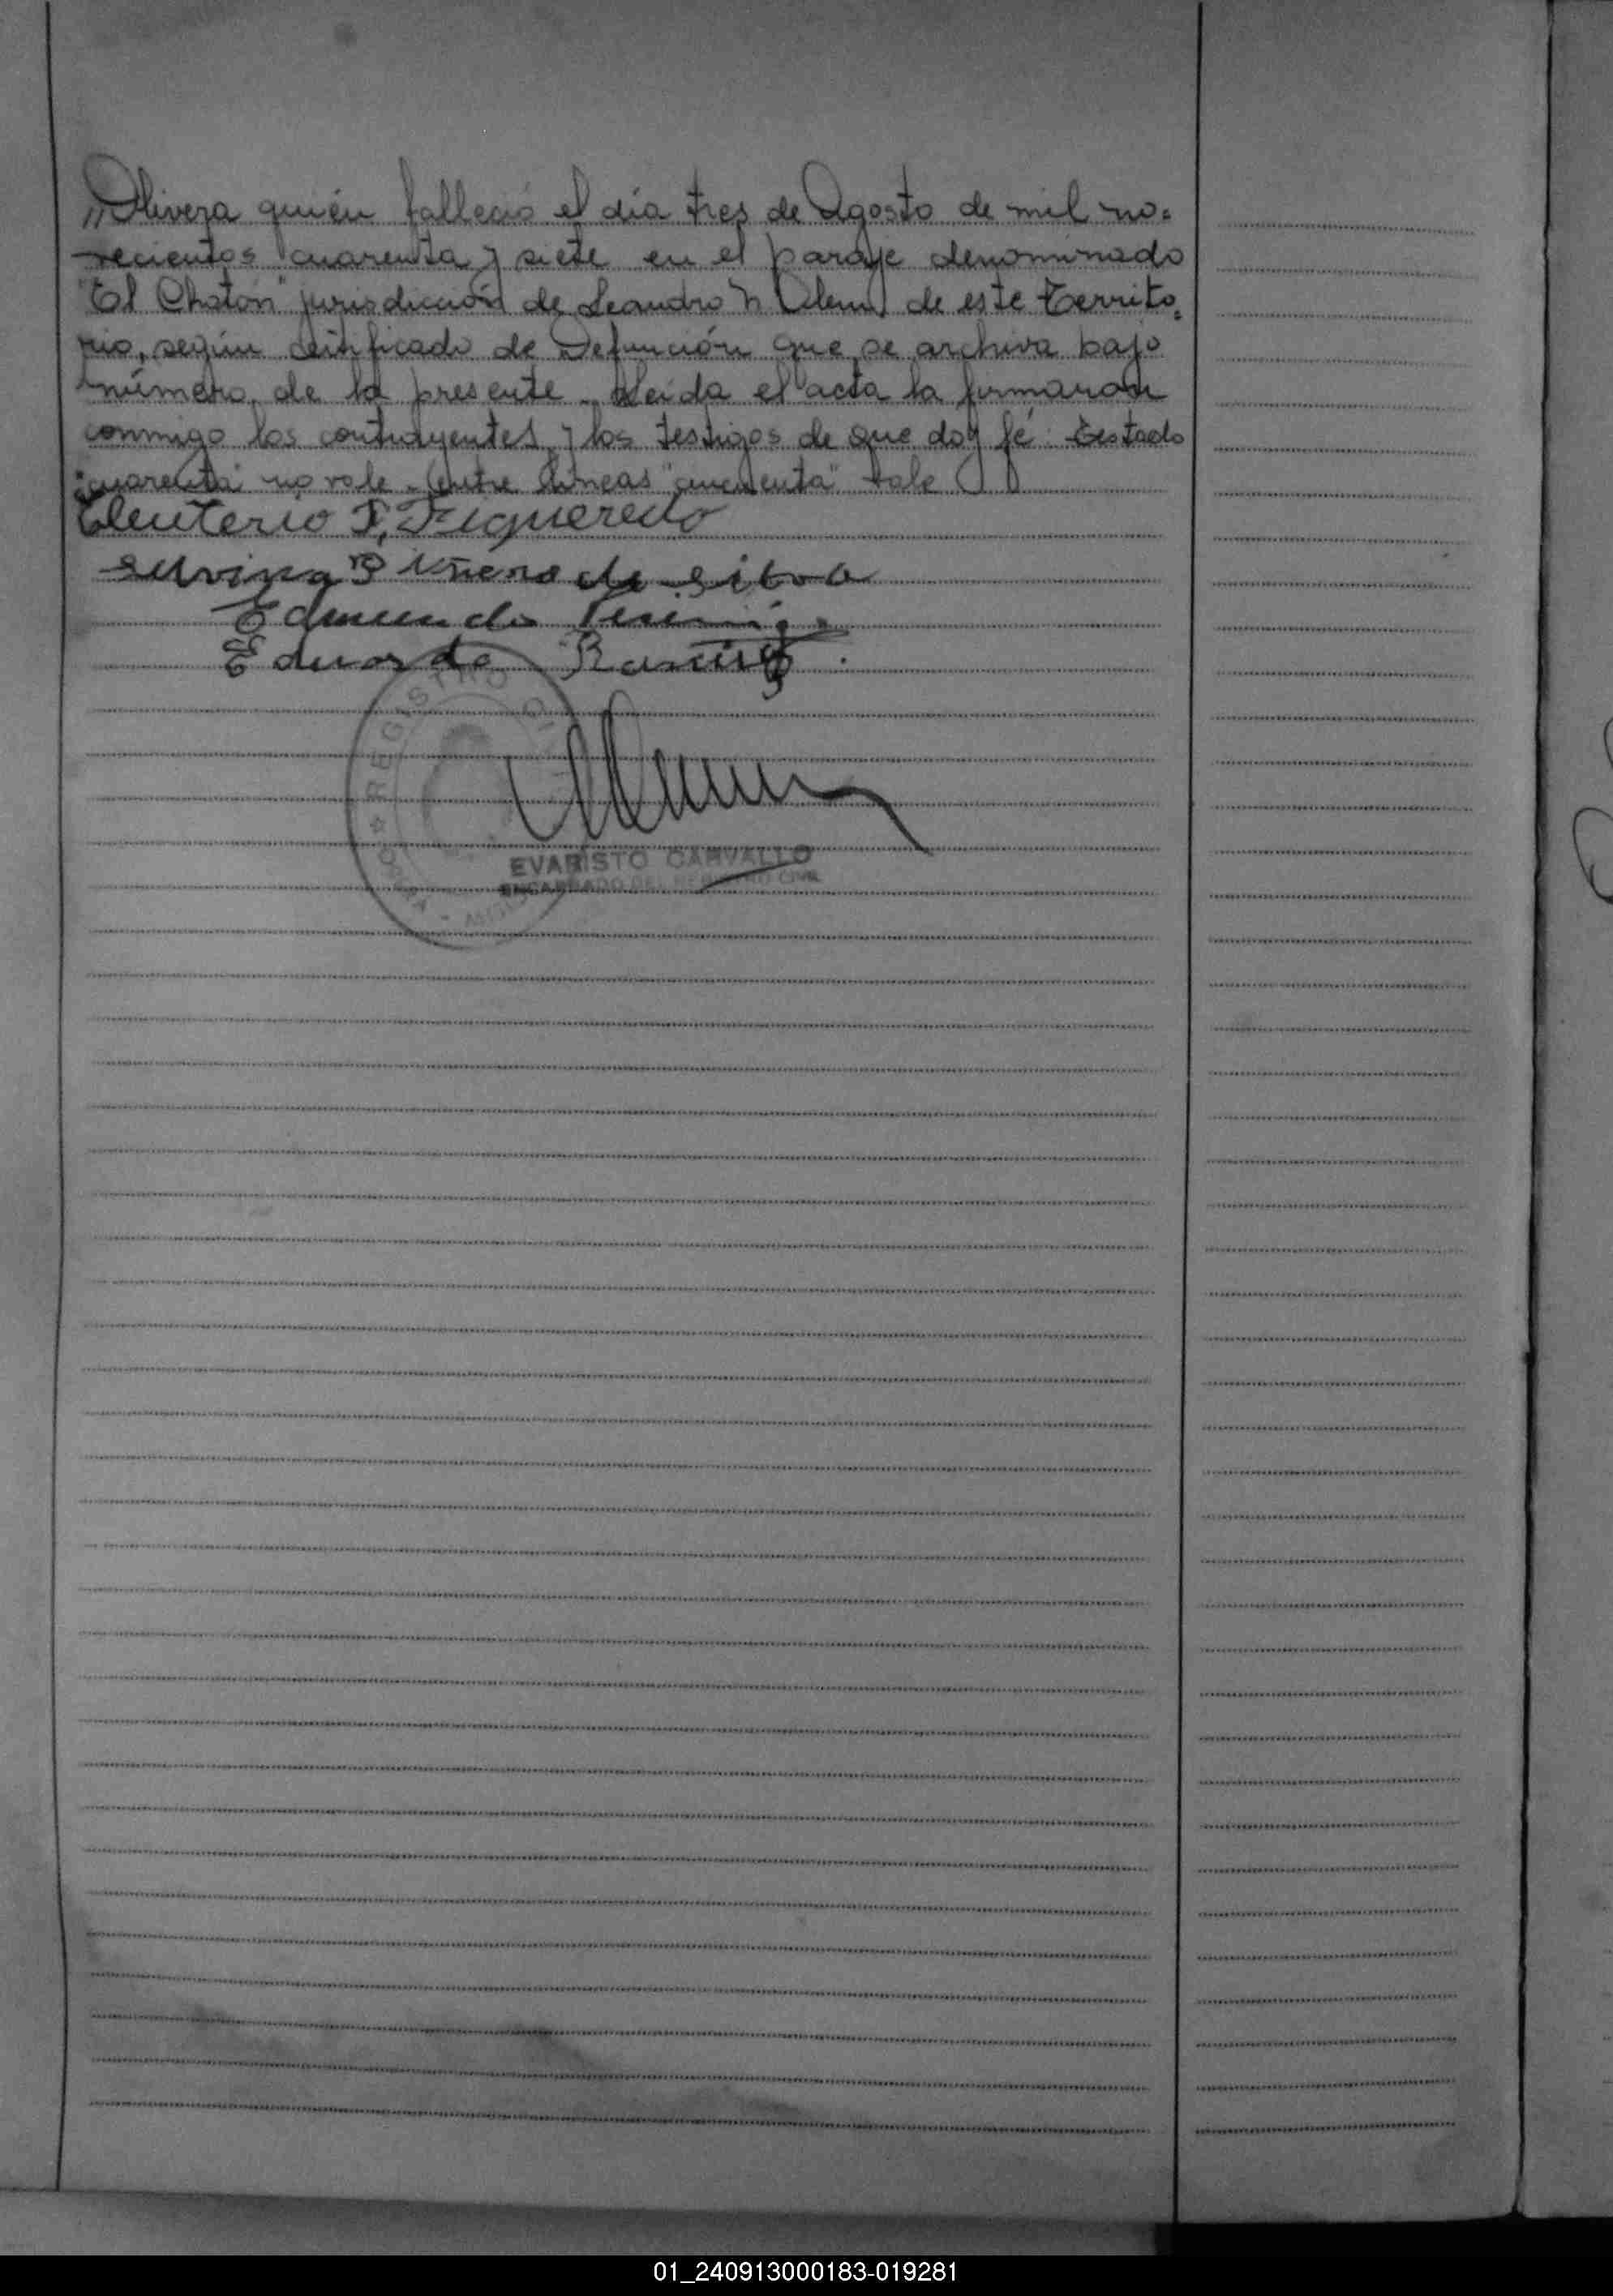 "Olivera quién falleció el día tres de Agosto de mil no=
vecientos cuarenta y siete en el paraje denominado
"El Chatón" jurisdicción de Leandro N Alem, de este Territo=
rio, según certificado de Defunción que se archiva bajo
número de la presente. Leída el acta la firmaron
conmigo los contrayentes y los testigos de que doy fé. Testado
"cuarenta" no vale. Entre líneas "cincuenta" vale
Eleuterio F. Figueredo
Silvina Piñero de Silva
Edmundo
Eduardo Ramirez.
REGISTRO CIVIL
EVARISTO CARVALLO
ENCARGADO DEL REGISTRO CIVIL
01_240913000183-019281